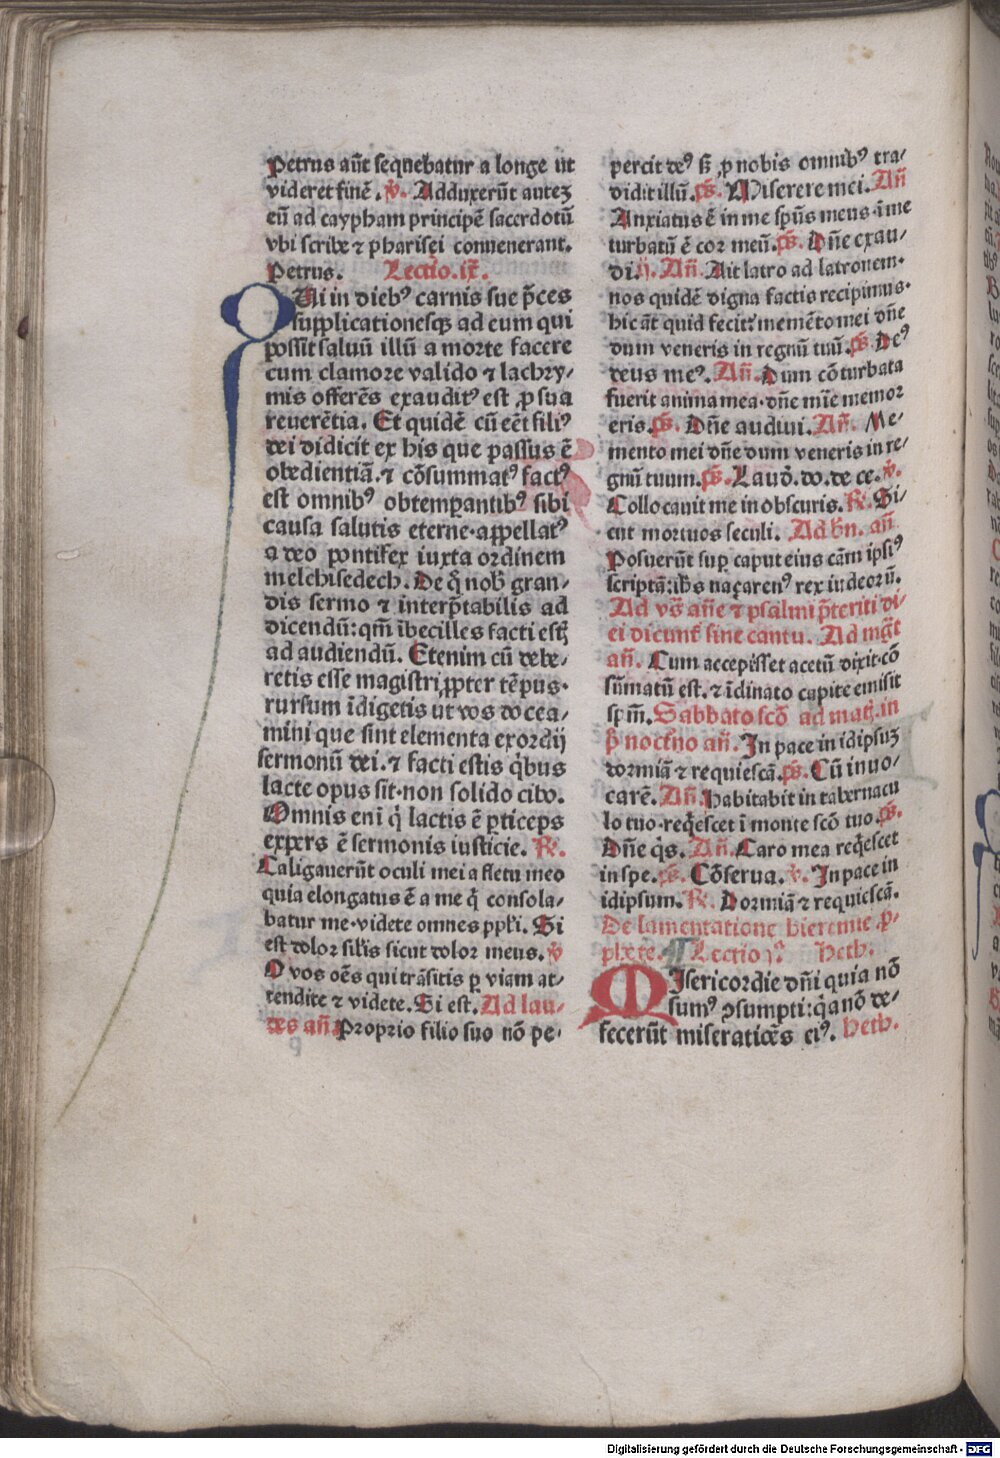 Petrus aūt sequebatur a longe ut
videret finē. ꝟ. Adduxerūt auteꝫ
eū ad caypham principē sacerdotū
vbi scribe ⁊ pharisęi conuenerant.
Petrus. Lectio.ix̄.
QUi in diebꝰ carnis sue p̄ces
supplicationesqꝫ ad eum qui
possit saluū illū a morte facere
cum clamore valido ⁊ lachry/
mis offerēs exauditꝰ est ꝓ sua
reuerētia. Et quidē cū eēt filiꝰ
dei didicit ex his que passus ē
obedientiā.⁊ cōsummatꝰ factꝰ
est omnibꝰ obtemꝑantibꝰ sibi
causa salutis eterne·appellatꝰ
a deo pontifex iuxta ordinem
melchisedech. De q̄ nob̄ gran/
dis sermo ⁊ interp̄tabilis ad
dicendū:qm̄ ībecilles facti estꝭ
ad audiendū. Etenim cū debe/
retis esse magistri,ꝓpter tēpus·
rursum īdigetis ut vos docea/
mini que sint elementa exordij
sermonū dei.⁊ facti estis q̇bus
lacte opus sit·non solido cibo.
Omnis enī q̇ lactis ē ꝑticeps
expers ē sermonis iusticie. ℟.
Caligauerūt oculi mei a fletu meo
quia elongatus ē a me q̇ consola/
batur me·videte omnes ppl̄i. Si
est dolor sil̄is sicut dolor meus. ꝟ
O vos oēs qui trāsitis ꝑ viam at/
tendite ⁊ videte. Si est. Ad lau/
des an̄. Proprio filio suo nō pe·
percit deꝰ s̄ꝫ ꝓ nobis omnibꝰ tra/
didit illū. ps̄. Miserere mei. An̄
Anxiatus ē in me sp̄us meus·ī me
turbatū ē cor meū. ps̄. Dn̄e exau/
di.ij. An̄. Ait latro ad latronem·
nos quidē digna factis recipimus·
hic āt quid fecit? memēto mei dn̄e
dum veneris in regnū tuū. ps̄. Deꝰ
deus meꝰ. An̄. Dum cōturbata
fuerit anima mea·dn̄e mīe memor
eris. ps̄. Dn̄e audiui. An̄. Me/
mento mei dn̄e dum veneris in re/
gnū tuum. ps̄. Laud̄. do. de ce. ꝟ.
Collocauit me in obscuris. ℟. Si/
cut mortuos seculi. Ad bn̄. an̄
Posuerūt suꝑ caput eius cām ipsiꝰ
scriptā:ihs naçarenꝰ rex iudeorū.
Ad vs̄ an̄e ⁊ psalmi p̄teriti di/
ei dicunt̄ sine cantu. Ad mḡt
an̄. Cum accepisset acetū dixit·cō
sūmatū est.⁊ īclinato capite emisit
sp̄m. Sabbato scō ad mat̄.in
p̄ nocťno an̄. In pace in idipsuꝫ
dormiā ⁊ requiescā. ps̄. Cū inuo/
carē. An̄. Habitabit in tabernacu
lo tuo·req̇escet ī monte scō tuo. ps̄.
Dn̄e q̇s. An̄. Caro mea req̇escet
in spe. ps̄. Cōserua. ꝟ. In pace in
idipsum. ℟. Dormiā ⁊ requiescā.
De lamentatione hieremie p̄/
phete. ¶ Lectio .jᵃ. Heth.
MIsericordie dn̄i quia nō
sumꝰ ꝯsumpti:q̇a nō de/
fecerūt miseratiōes eiꝰ. Heth.
Digitalisierung gefördert durch die Deutsche Forschungsgemeinschaft - DFG